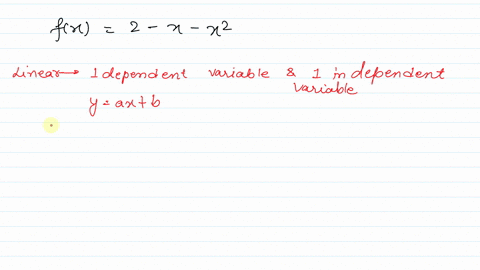 f(x) = 2 - x - x²
Linear → 1 dependent variable & 1 independent
variable
y = ax + b